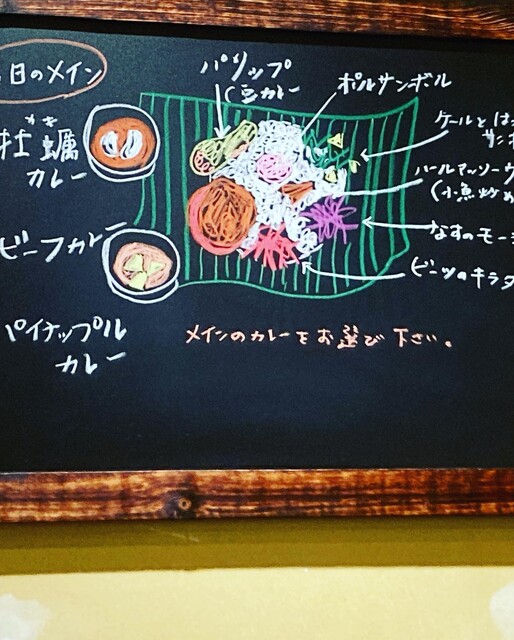 日のメイン
パリップ
(豆カレー
ポルサンボル
かき
牡蠣
カレー
ケールとは
サンボ
ハールマッソーウ
(小魚炒め
なすのモー
ビーツのキラタ
ビーフカレー
パイナップル
カレー
メインのカレーをお選び下さい。